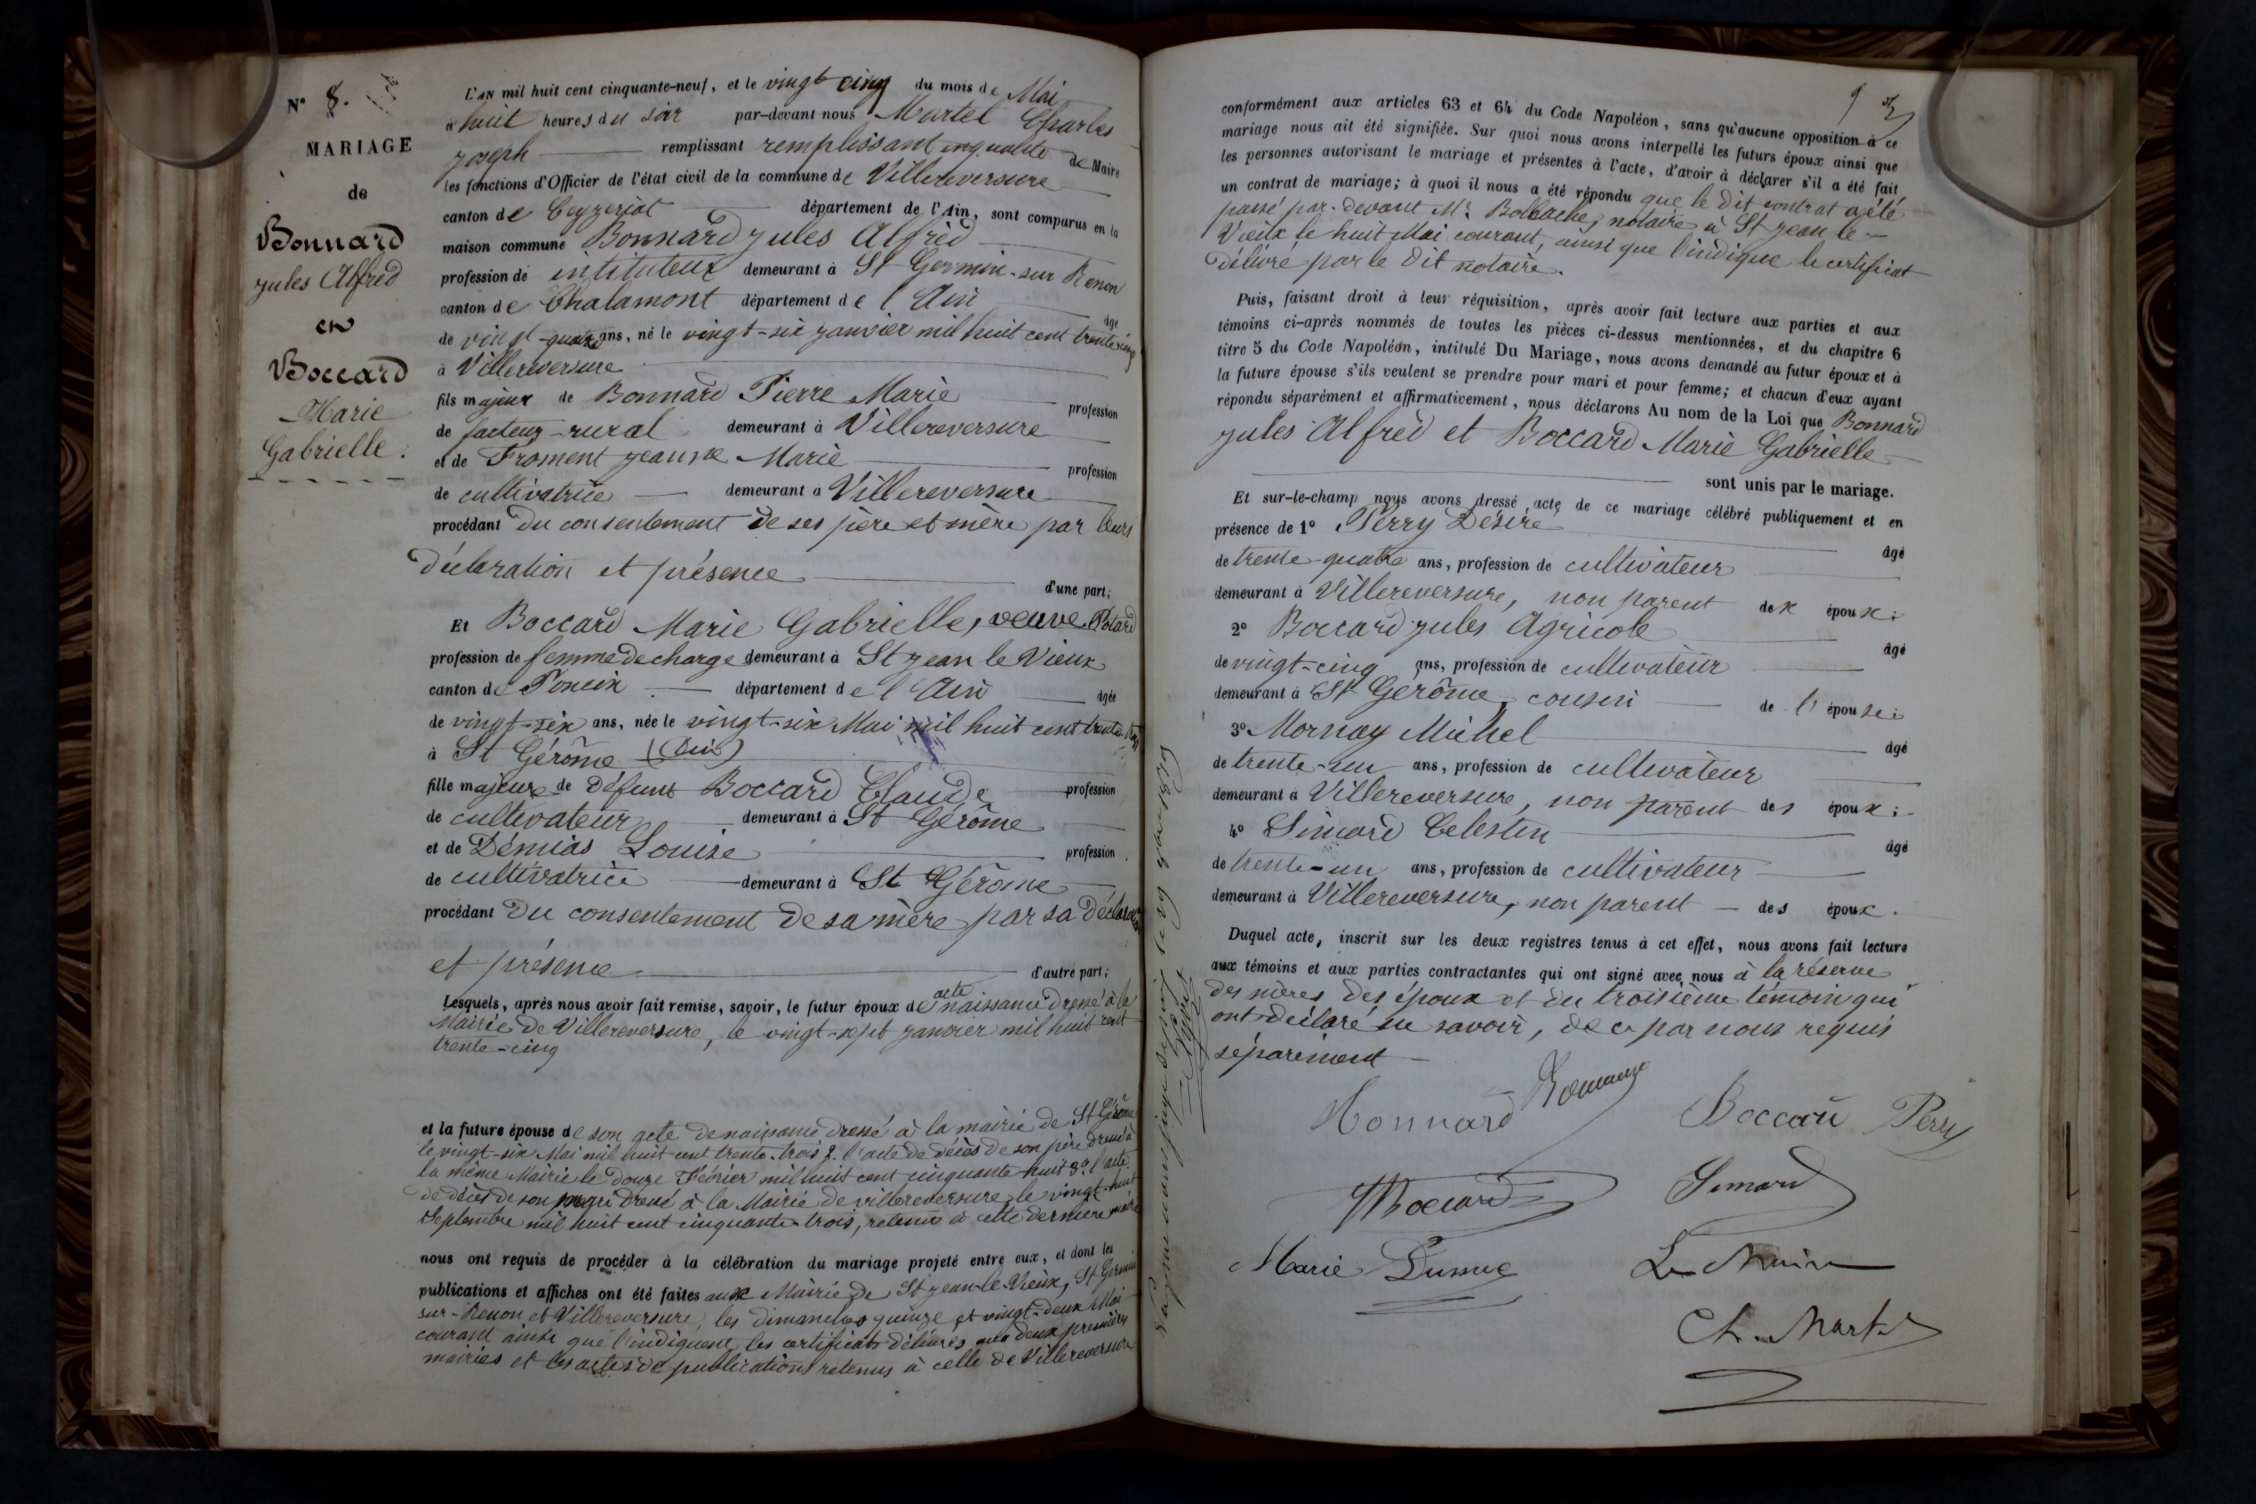 N° 8.
MARIAGE
de
Bonnard
Jules Alfred
et
Boccard
Marie
Gabrielle.
L'AN mil huit cent cinquante-neuf, et le vingt cinq du mois de Mai
à huit heures du soir par-devant nous Martel Charles
Joseph remplissant remplissant en qualité de Maire
les fonctions d'Officier de l'état civil de la commune de Villereversure
canton de Ceyzeriat département de l'Ain, sont comparus en la
maison commune Bonnard Jules Alfred
profession de instituteur demeurant à St Germin-sur Renon
canton de Chalamont département de l'Ain âgé
de vingt-quatre ans, né le vingt-six Janvier mil huit cent trente-cinq
à Villereversure
fils majeur de Bonnard Pierre Marie profession
de facteur-rural demeurant à Villereversure
et de Froment Jeanne Marie profession
de cultivatrice demeurant à Villereversure
procédant du consentement de ses père et mère par leurs
déclaration et présence d'une part;
Et Boccard Marie Gabrielle, veuve Polard
profession de femme de charge demeurant à St Jean le Vieux
canton de Poncin département de l'Ain âgée
de vingt-six ans, née le vingt-six Mai mil huit cent trente-trois
à St Gérôme (Ain)
fille majeure de défunt Boccard Claude profession
de cultivateur demeurant à St Gérôme
et de Démias Louise profession
de cultivatrice demeurant à St Gérôme
procédant du consentement de sa mère par sa déclaration
et présence d'autre part;
Lesquels, après nous avoir fait remise, savoir, le futur époux de acte naissance dressé à la
Mairie de Villereversure, le vingt-sept Janvier mil huit cent
trente-cinq
et la future épouse de son acte de naissance dressé à la mairie de St Gérôme
le vingt-six Mai mil huit cent trente-trois 2° l'acte de décès de son père dressé à
la même Mairie le douze Février mil huit cent cinquante-huit 3° l'acte
de décès de son mari dressé à la Mairie de Villereversure le vingt-huit
Septembre mil huit cent cinquante-trois, retenu à cette dernière mairie
nous ont requis de procéder à la célébration du mariage projeté entre eux, et dont les
publications et affiches ont été faites aux Mairie de St Jean-le-Vieux, St Germain
sur-Renon et Villereversure, les dimanches quinze et vingt-deux Mai
courant ainsi que l'indiquent les certificats délivrés aux deux premières
mairies et les actes de publications retenus à celle de Villereversure
conformément aux articles 63 et 64 du Code Napoléon, sans qu'aucune opposition à ce
mariage nous ait été signifiée. Sur quoi nous avons interpellé les futurs époux ainsi que
les personnes autorisant le mariage et présentes à l'acte, d'avoir à déclarer s'il a été fait
un contrat de mariage; à quoi il nous a été répondu que le dit contrat a été
passé par-devant Me Bolbache, notaire à St Jean le
Vieux le huit Mai courant, ainsi que l'indique le certificat
délivré par le dit notaire.
Puis, faisant droit à leur réquisition, après avoir fait lecture aux parties et aux
témoins ci-après nommés de toutes les pièces ci-dessus mentionnées, et du chapitre 6
titre 5 du Code Napoléon, intitulé Du Mariage, nous avons demandé au futur époux et à
la future épouse s'ils veulent se prendre pour mari et pour femme; et chacun d'eux ayant
répondu séparément et affirmativement, nous déclarons Au nom de la Loi que Bonnard
Jules Alfred et Boccard Marie Gabrielle
sont unis par le mariage.
Et sur-le-champ nous avons dressé acte de ce mariage célébré publiquement et en
présence de 1° Perry Désiré âgé
de trente-quatre ans, profession de cultivateur
demeurant à Villereversure, non parent des époux;
2° Boccard Jules Agricole âgé
de vingt-cinq ans, profession de cultivateur
demeurant à St Gérôme, cousin de l'épouse;
3° Mornay Michel âgé
de trente-un ans, profession de cultivateur
demeurant à Villereversure, non parent des époux;
4° Simard Celestin âgé
de trente-un ans, profession de cultivateur
demeurant à Villereversure, non parent des époux.
Duquel acte, inscrit sur les deux registres tenus à cet effet, nous avons fait lecture
aux témoins et aux parties contractantes qui ont signé avec nous à la réserve
des mères des époux et du troisième témoin qui
ont déclaré ne savoir, de ce par nous requis
séparément
Bonnard Boccard Perry
Boccard Simard
Marie Le Maire
Ch. Martel